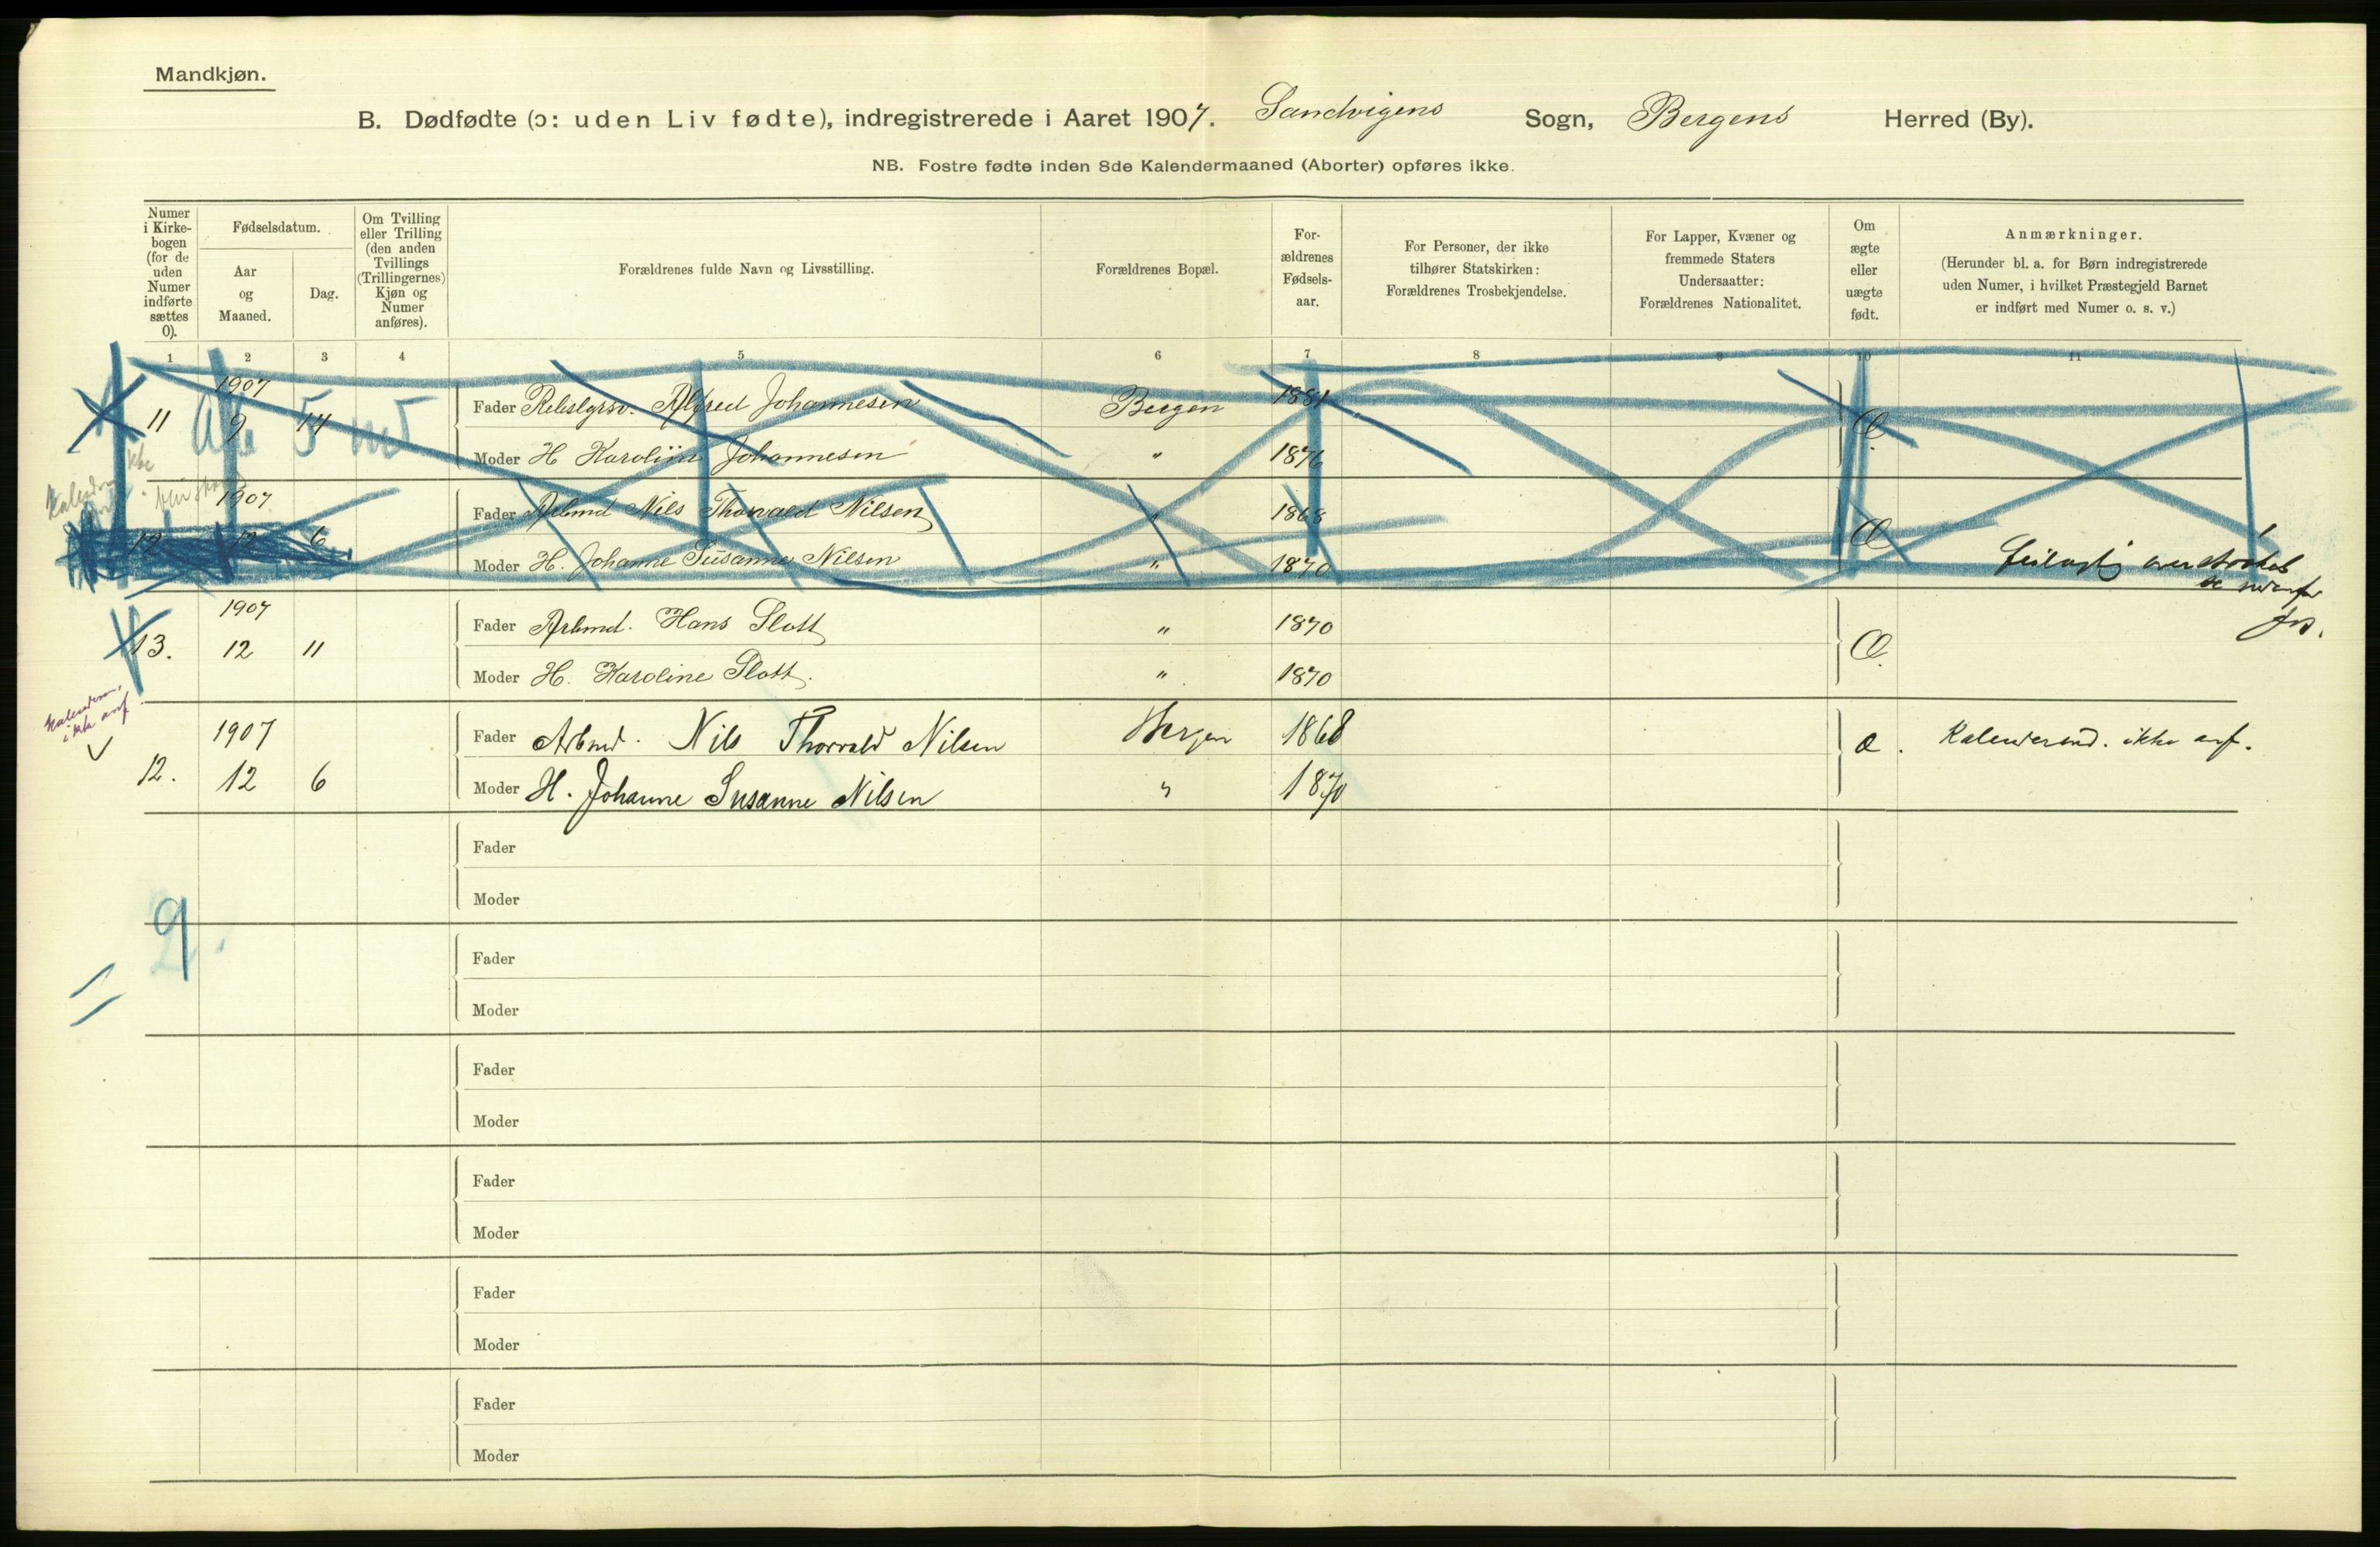 Mandkjøn.
B. Dødfødte (ɔ: uden Liv fødte), indregistrerede i Aaret 1907. Sandvigens Sogn, Bergens Herred (By).
NB. Fostre fødte inden 8de Kalendermaaned (Aborter) opføres ikke.
Numer i Kirke-bogen (for de uden Numer indførte sættes 0).
Fødselsdatum.
Aar og Maaned.
Dag.
Om Tvilling eller Trilling (den anden Tvillings (Trillingernes) Kjøn og Numer anføres).
Forældrenes fulde Navn og Livsstilling.
Forældrenes Bopæl.
For-ældrenes Fødsels-aar.
For Personer, der ikke tilhører Statskirken: Forældrenes Trosbekjendelse.
For Lapper, Kvæner og fremmede Staters Undersaatter: Forældrenes Nationalitet.
Om ægte eller uægte født.
Anmærkninger.
(Herunder bl. a. for Børn indregistrerede uden Numer, i hvilket Præstegjeld Barnet er indført med Numer o. s. v.)
1 2 3 4 5 6 7 8 9 10 11
1907
11 9 14 Fader Alfred Johannesen Bergen 1881 Æ
Moder H Karoline Johannesen " 1876
1907
12 12 6 Fader Arbmd Nils Thorvald Nilsen " 1868 Æ
Moder H. Johanne Susanne Nilsen " 1870
feilagtig overstrøket
se nedenfor
1907
13. 12 11 Fader Arbmd. Hans Slott " 1870 Æ.
Moder H. Karoline Slott. " 1870
Kalenderm.
ikke anf.
1907
12. 12 6 Fader Arbmd. Nils Thorvald Nilsen Bergen 1868 æ. Kalendermd. ikke anf.
Moder H. Johanne Susanne Nilsen " 1870
Fader
Moder
9
Fader
Moder
Fader
Moder
Fader
Moder
Fader
Moder
Fader
Moder